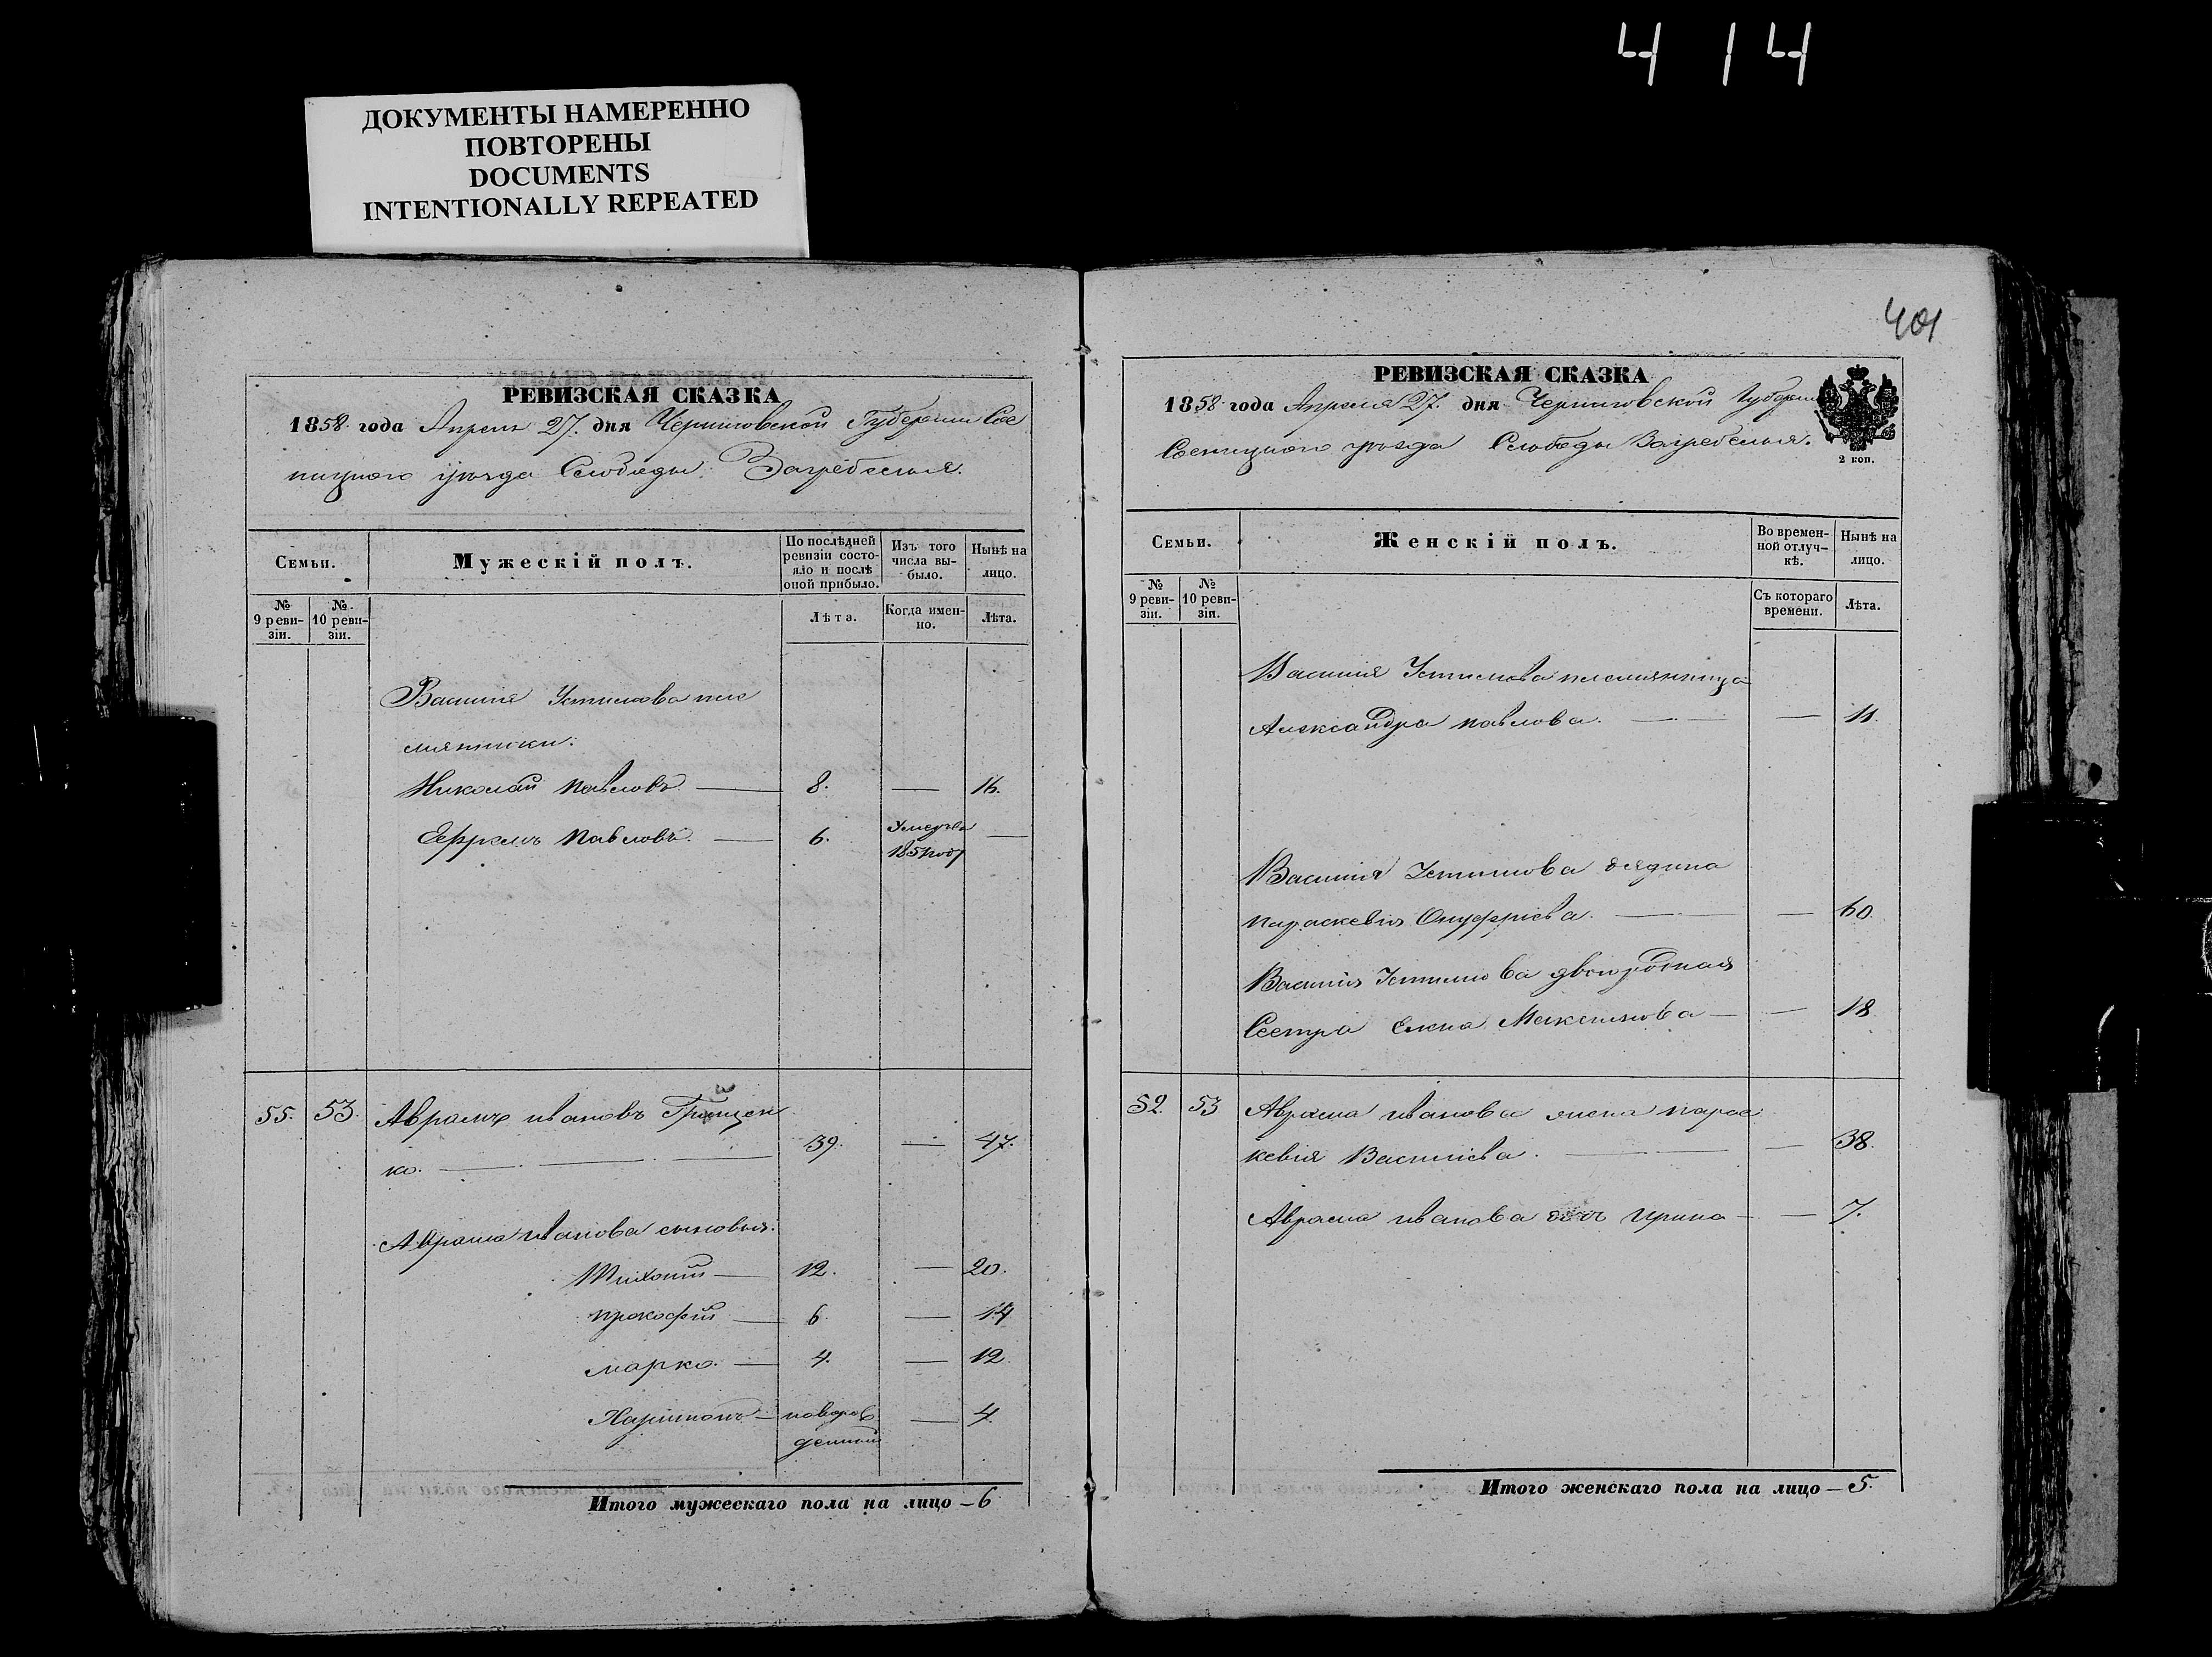 4 14
ДОКУМЕНТЫ НАМЕРЕННО
ПОВТОРЕНЫ
DOCUMENTS
INTENTIONALLY REPEATED
РЕВИЗСКАЯ СКАЗКА
1858 года Апреля 27. дня Черниговской Губернии Сос
ницкого уѣзда Слободы Загребелья.
Семьи.
Мужескій полъ.
По послѣдней ревизіи состояло и послѣ оной прибыло.
Изъ того числа выбыло.
Нынѣ на лицо.
№ 9 ревизіи.
№ 10 ревизіи.
Лѣта.
Когда именно.
Лѣта.
Василія Устимова пле
мянники:
Николай Павловъ — 8. — 16.
Ефремъ Павловъ. — 6. Умеръ въ 1851 году —
55. 53. Аврамъ Ивановъ Грищен
ко. — 39. — 47.
Аврама Иванова сыновья.
Тихонъ — 12. — 20.
Прокофій — 6. — 14
Марко. — 4. — 12.
Харитонъ — новорож
денный — 4.
Итого мужескаго пола на лицо — 6
401
РЕВИЗСКАЯ СКАЗКА
1858 года Апреля 27. дня Черниговской Губернии
Сосницкого уѣзда Слободы Загребелья.
2 коп.
Семьи.
Женскій полъ.
Во временной отлучкѣ.
Нынѣ на лицо.
№ 9 ревизіи.
№ 10 ревизіи.
Съ котораго времени.
Лѣта.
Василія Устимова племянница
Александра Павлова. — — 11.
Василія Устимова дядина
Параскевія Онуфріева. — — 60.
Василія Устимова двоюродная
Сестра Елена Максимова — — 18
52. 53 Аврама Иванова жена Парас
кевія Василіева. — — 38.
Аврама Иванова дочь Ирина — — 7.
Итого женскаго пола на лицо — 5.